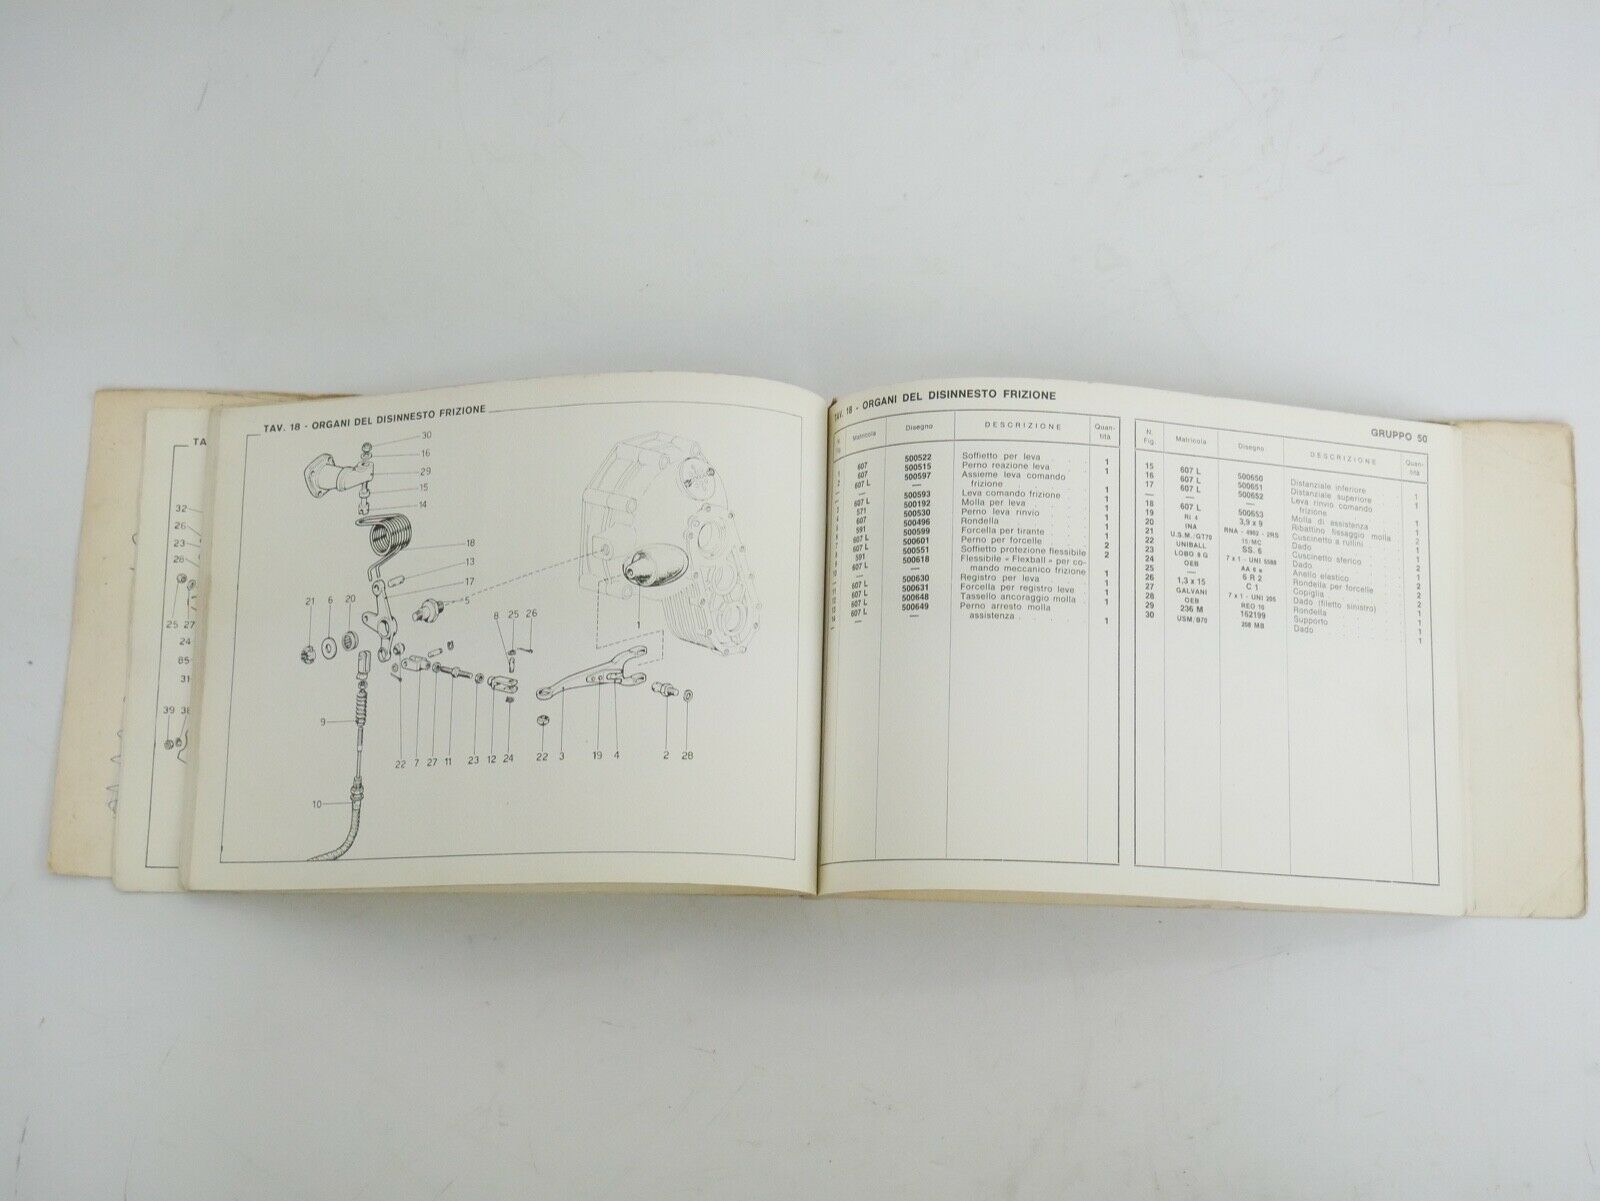 TA
32
26
23
28
25 27
24
85
31
39 38
TAV. 18 - ORGANI DEL DISINNESTO FRIZIONE
30
16
29
15
14
18
13
17
21 6 20
5
8 25 26
1
9
22 7 27 11 23 12 24 22 3 19 4 2 28
10
TAV. 18 - ORGANI DEL DISINNESTO FRIZIONE
GRUPPO 50
Matricola Disegno DESCRIZIONE Quan-tità
607 500522 Soffietto per leva 1
607 500515 Perno reazione leva 1
607 L 500597 Assieme leva comando
— frizione 1
500593 Leva comando frizione 1
607 L 500192 Molla per leva 1
571 500530 Perno leva rinvio 1
607 500496 Rondella 1
591 500599 Forcella per tirante 1
607 L 500601 Perno per forcelle 2
607 L 500551 Soffietto protezione flessibile 2
591 500618 Flessibile « Flexball » per co-
607 L — mando meccanico frizione 1
— 500630 Registro per leva 1
607 L 500631 Forcella per registro leve 1
607 L 500648 Tassello ancoraggio molla 1
607 L 500649 Perno arresto molla
— assistenza 1
N. Fig. Matricola Disegno DESCRIZIONE Quan-tità
15 607 L 500650 Distanziale inferiore 1
16 607 L 500651 Distanziale superiore 1
17 607 L 500652 Leva rinvio comando
— — frizione 1
18 607 L 500653 Molla di assistenza 1
19 RI 4 3,9 x 9 Ribattino fissaggio molla 2
20 INA RNA - 4902 - 2RS Cuscinetto a rullini 1
21 U.S.M./GT70 15/MC Dado 1
22 UNIBALL SS. 6 Cuscinetto sferico 2
23 LOBO 8 G 7 x 1 - UNI 5588 Dado 1
24 OEB AA 6 Anello elastico 2
25 — 6 R 2 Rondella per forcelle 2
26 1,3 x 15 C 1 Copiglia 2
27 GALVANI 7 x 1 - UNI 205 Dado (filetto sinistro) 1
28 OEB REO 10 Rondella 1
29 236 M 162199 Supporto 1
30 USM/B70 258 MB Dado 1